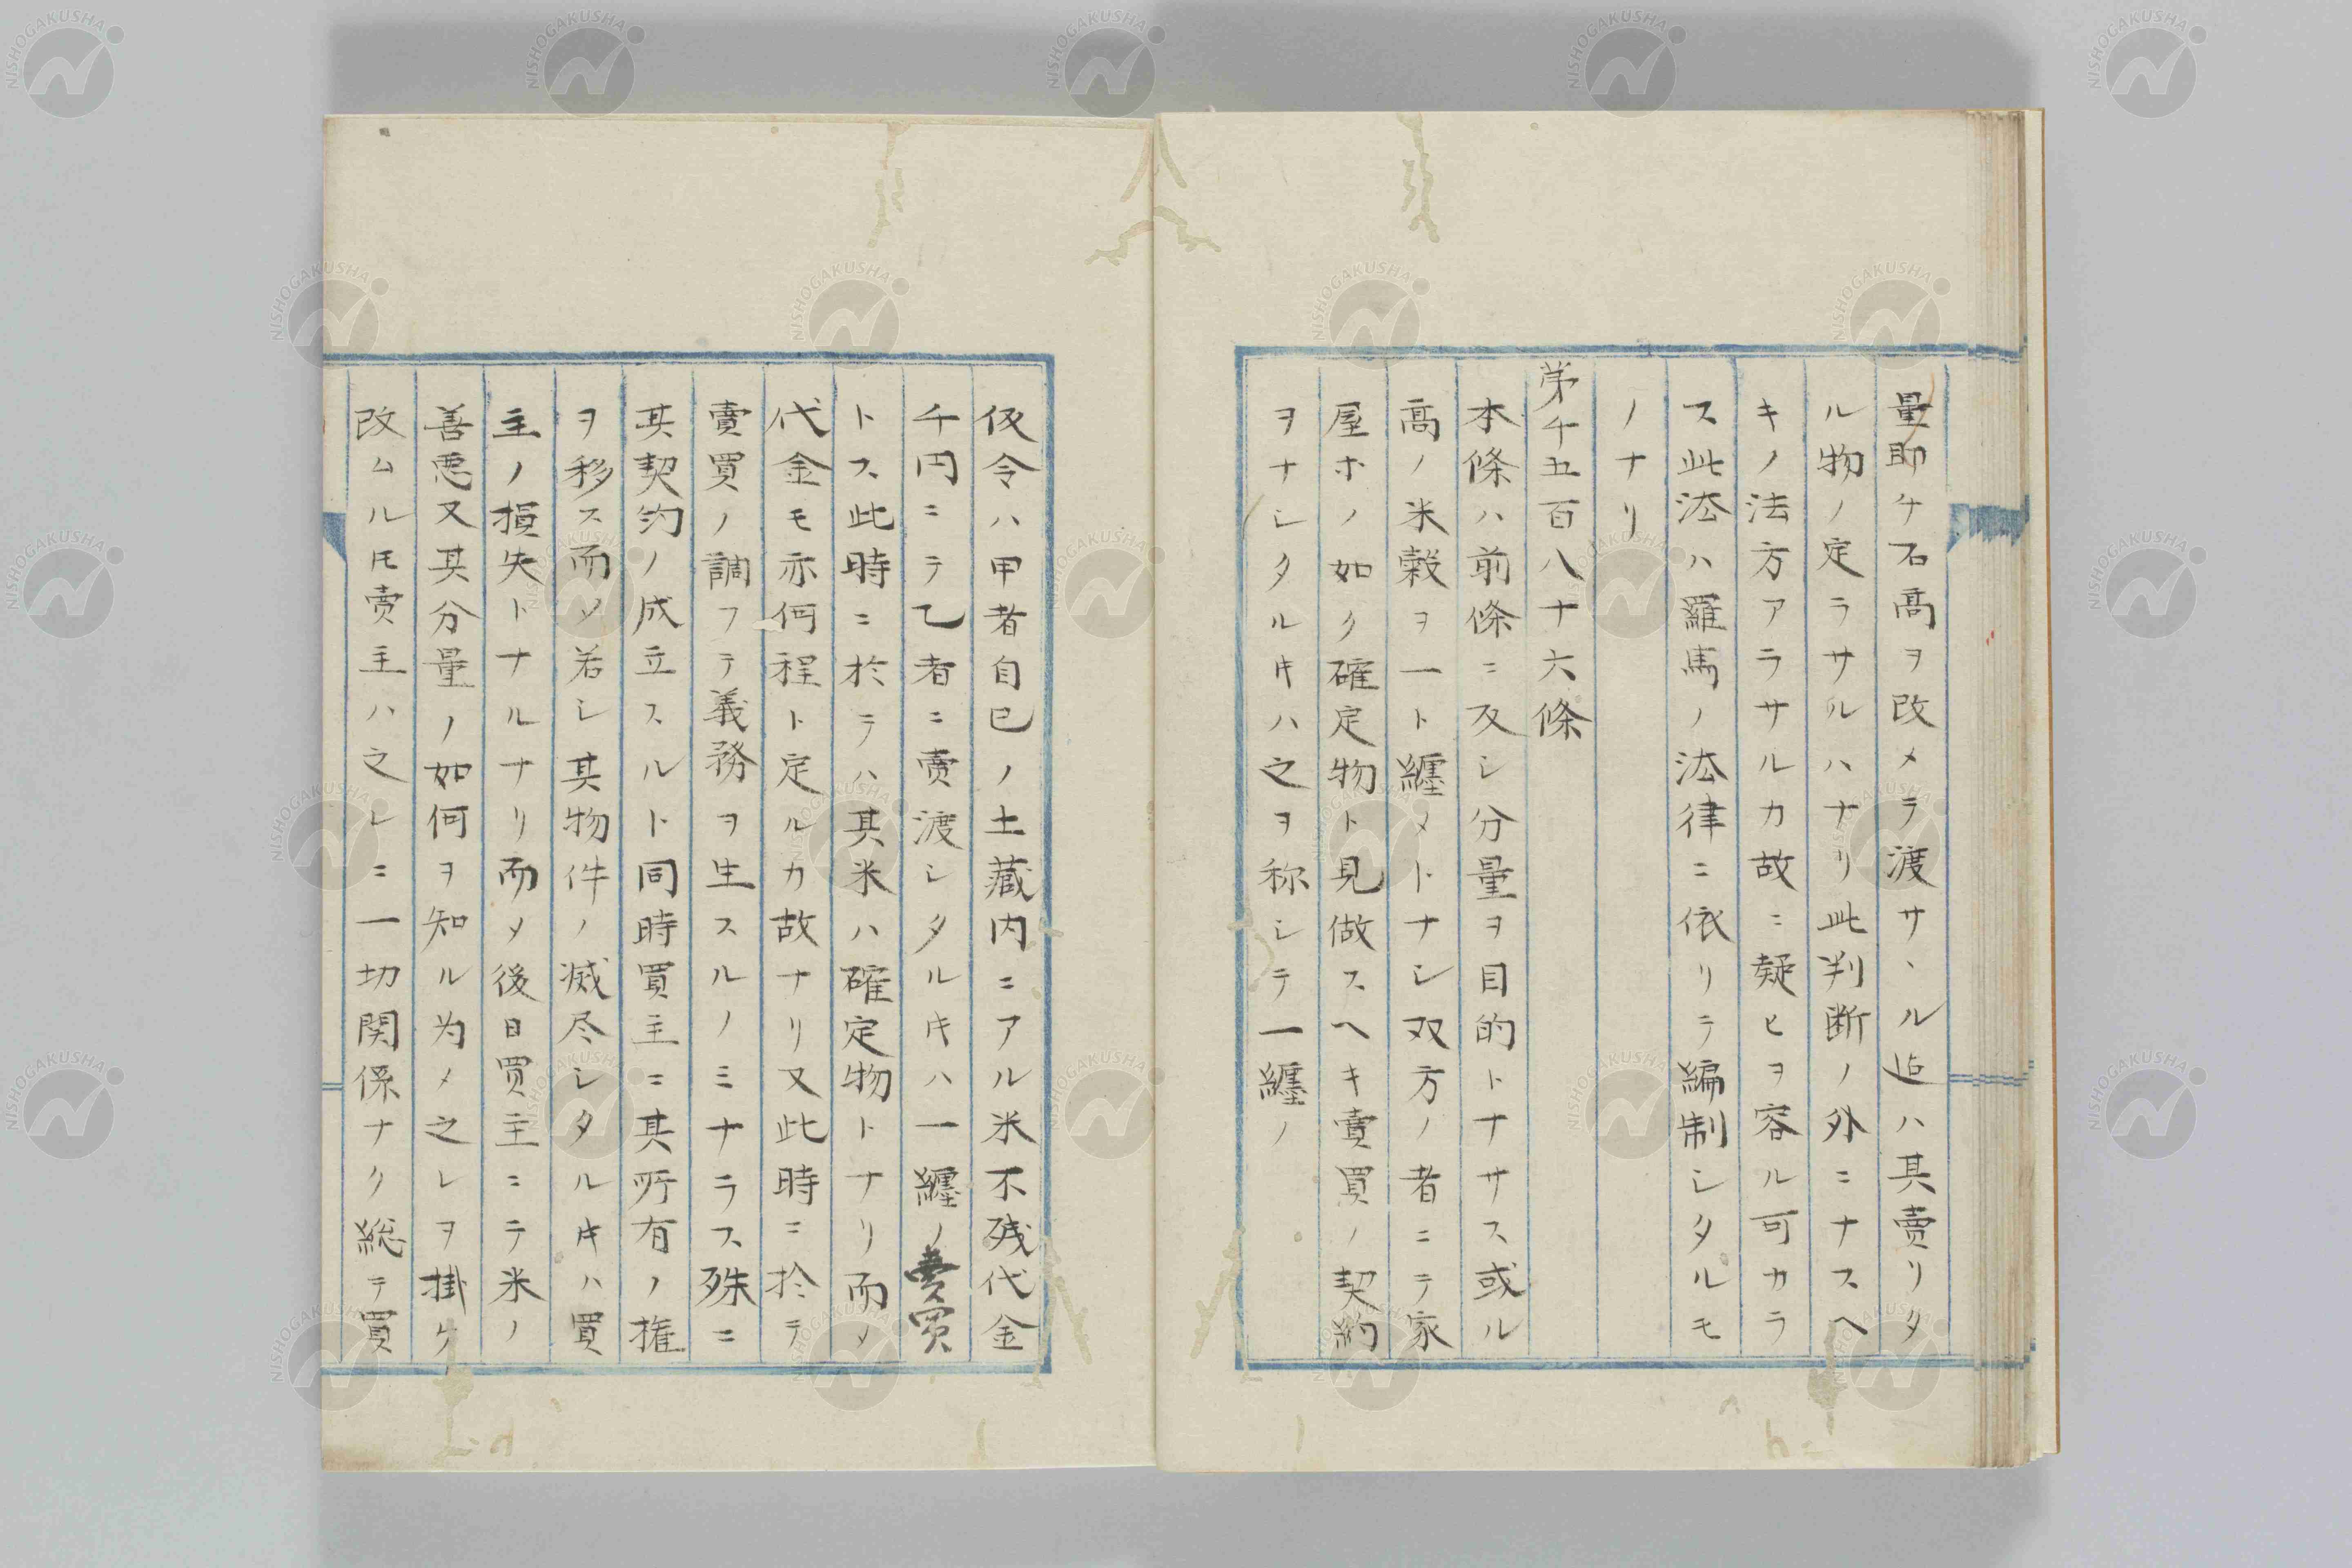 量助ケ石高ヲ改メテ渡サヽル迠ハ其賣リタ
ル物ノ定ラサルハナリ此判断ノ外ニナスヘ
キノ法方アラサルカ故ニ疑ヒヲ容ル可カラ
ス此法ハ羅馬ノ法律ニ依リテ編制シタルモ
ノナリ
第千五百八十六條
本條ハ前條ニ反シ分量ヲ目的トナサス或ル
高ノ米穀ヲ一ト纏メトナシ双方ノ者ニテ家
屋ホノ如ク確定物ト見做スヘキ賣買ノ契約
ヲナシタルキハ之ヲ称シテ一纏ノ
仮令ハ甲者自己ノ土藏内ニアル米不残代金
千円ニテ乙者ニ賣渡シタルキハ一纏ノ賣買
トス此時ニ於テハ其米ハ確定物トナリ而メ
代金モ亦何程ト定ルカ故ナリ又此時ニ於テ
賣買ノ調フテ義務ヲ生スルノミナラス殊ニ
其契約ノ成立スルト同時買主ニ其所有ノ権
ヲ移ス而メ若シ其物件ノ滅尽シタルキハ買
主ノ損失トナルナリ而メ後日買主ニテ米ノ
善悪又其分量ノ如何ヲ知ル为メ之レヲ掛ケ
改ムル圧賣主ハ之レニ一切関係ナク総テ買
NISHOGAKUSHA